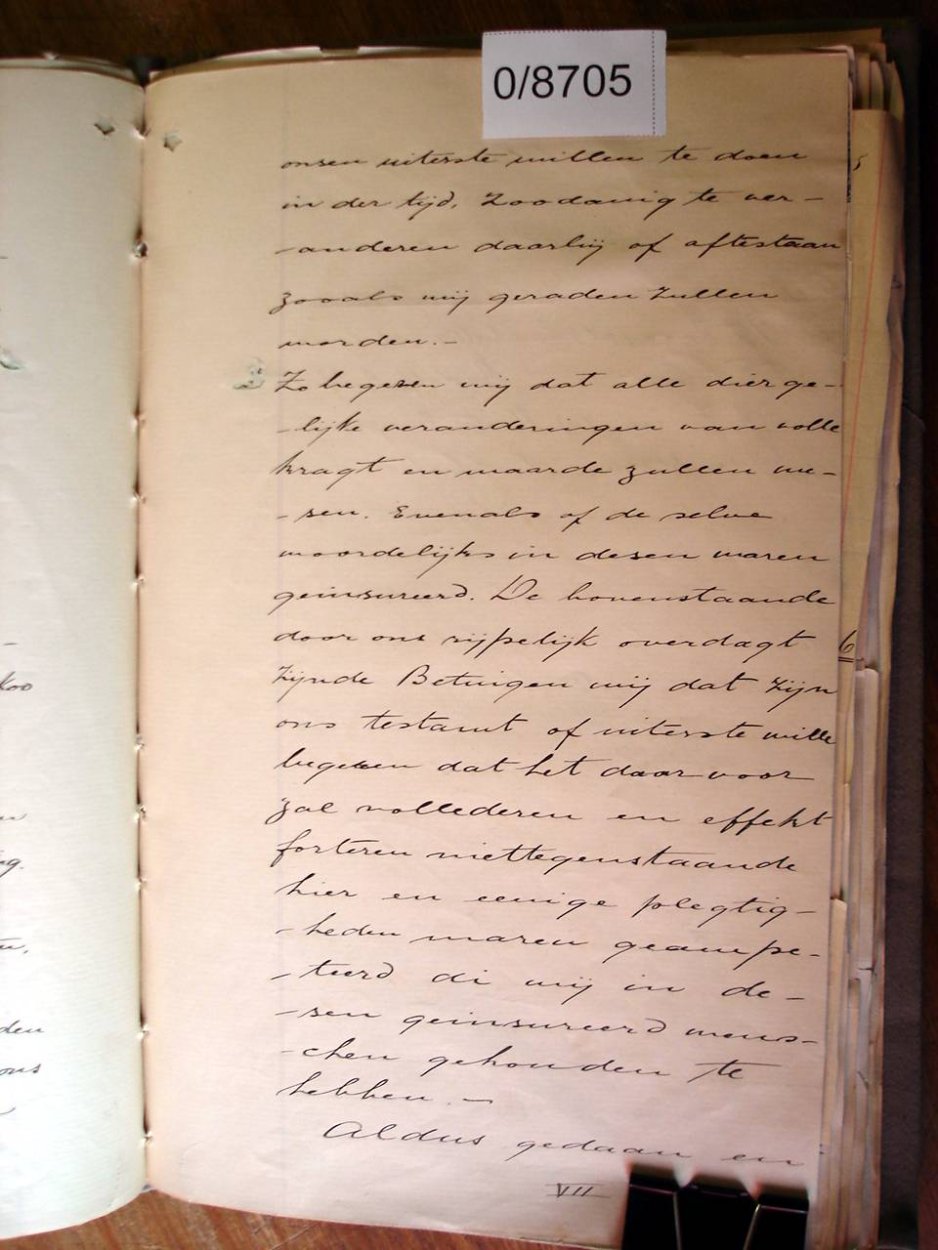 0/8705
onsen uiterste willen te doen
in der tijd, Zoodanig te ver-
-anderen daarbij of aftestaan
zooals wij geraden Zullen
worden.-
Zo begeren wij dat alle dier ge-
-lijke veranderingen van volle
kragt en waarde zullen we-
-sen. Evenals of de selve
woordelijks in desen waren
geinsureerd. De bovenstaande
door ons rijpelijk overdagt
Zijnde Betuigen wij dat Zijn
ons testamt of uiterste wille
begeren dat het daar voor
zal vollederen en effekt
forteren niettegenstaande
hier en eenige plegtig-
-heden waren geampe-
-teerd di wij in de-
-sen geinsureerd wens-
-chen gehouden te
hebben.-
Aldus gedaan en
VII
6
koo
den
ons